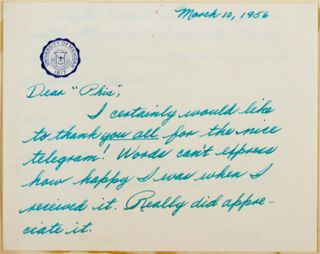 March 10, 1956
UNIVERSITY OF MICHIGAN
1817
Dear "Phis",
I certainly would like
to thank you all for the nice
telegram! Words can't express
how happy I was when I
received it. Really did appre-
ciate it.